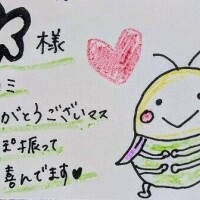 様
ミ
がとうございマス
ぽ振って
喜んでます♥